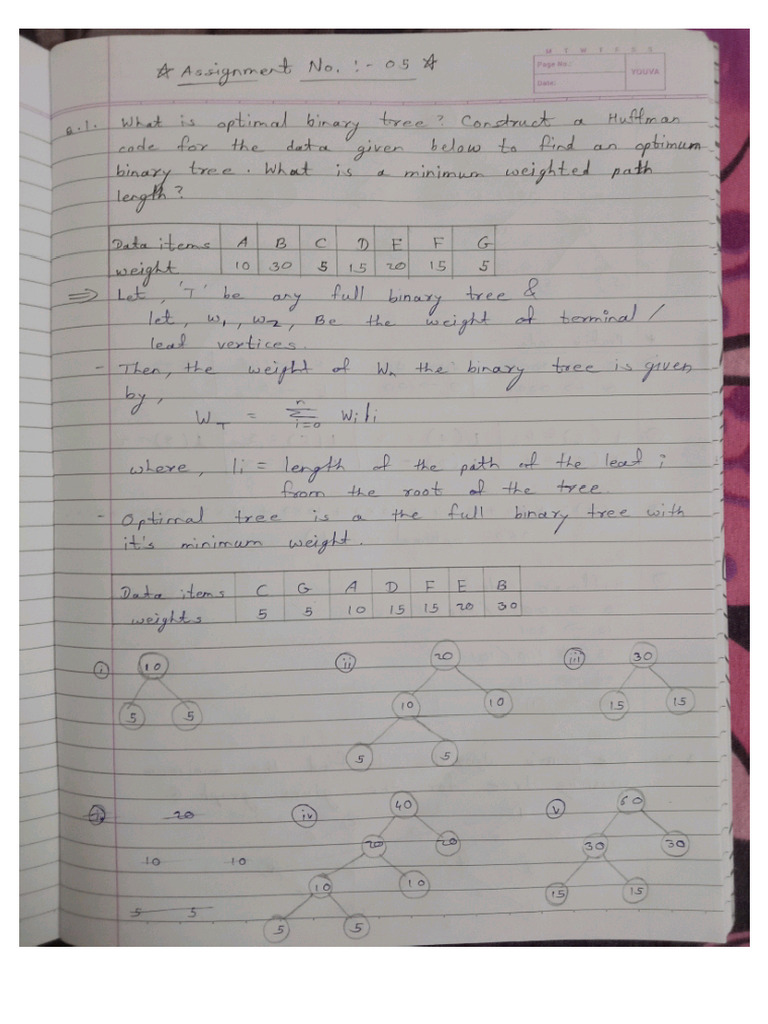 ☆ Assignment No. :- 05 ☆
M T W T F S S
Page No.:
Date:
YOUVA
Q.1. What is optimal binary tree? Construct a Huffman
code for the data given below to find an optimum
binary tree. What is a minimum weighted path
length?
Data items A B C D E F G
weight 10 30 5 15 20 15 5
⇒ Let, 'T' be any full binary tree &
let, w1, w2, Be the weight of terminal /
leaf vertices.
- Then, the weight of Wn the binary tree is given
by,
W_T = n Σ i=0 Wili
where, li = length of the path of the leaf i
from the root of the tree.
- Optimal tree is a the full binary tree with
it's minimum weight.
Data items C G A D F E B
weights 5 5 10 15 15 20 30
i 10 ii 20 iii 30
5 5 10 10 15 15
5 5
20 iv 40 v 60
10 10 20 20 30 30
10 10 15 15
5 5 5 5